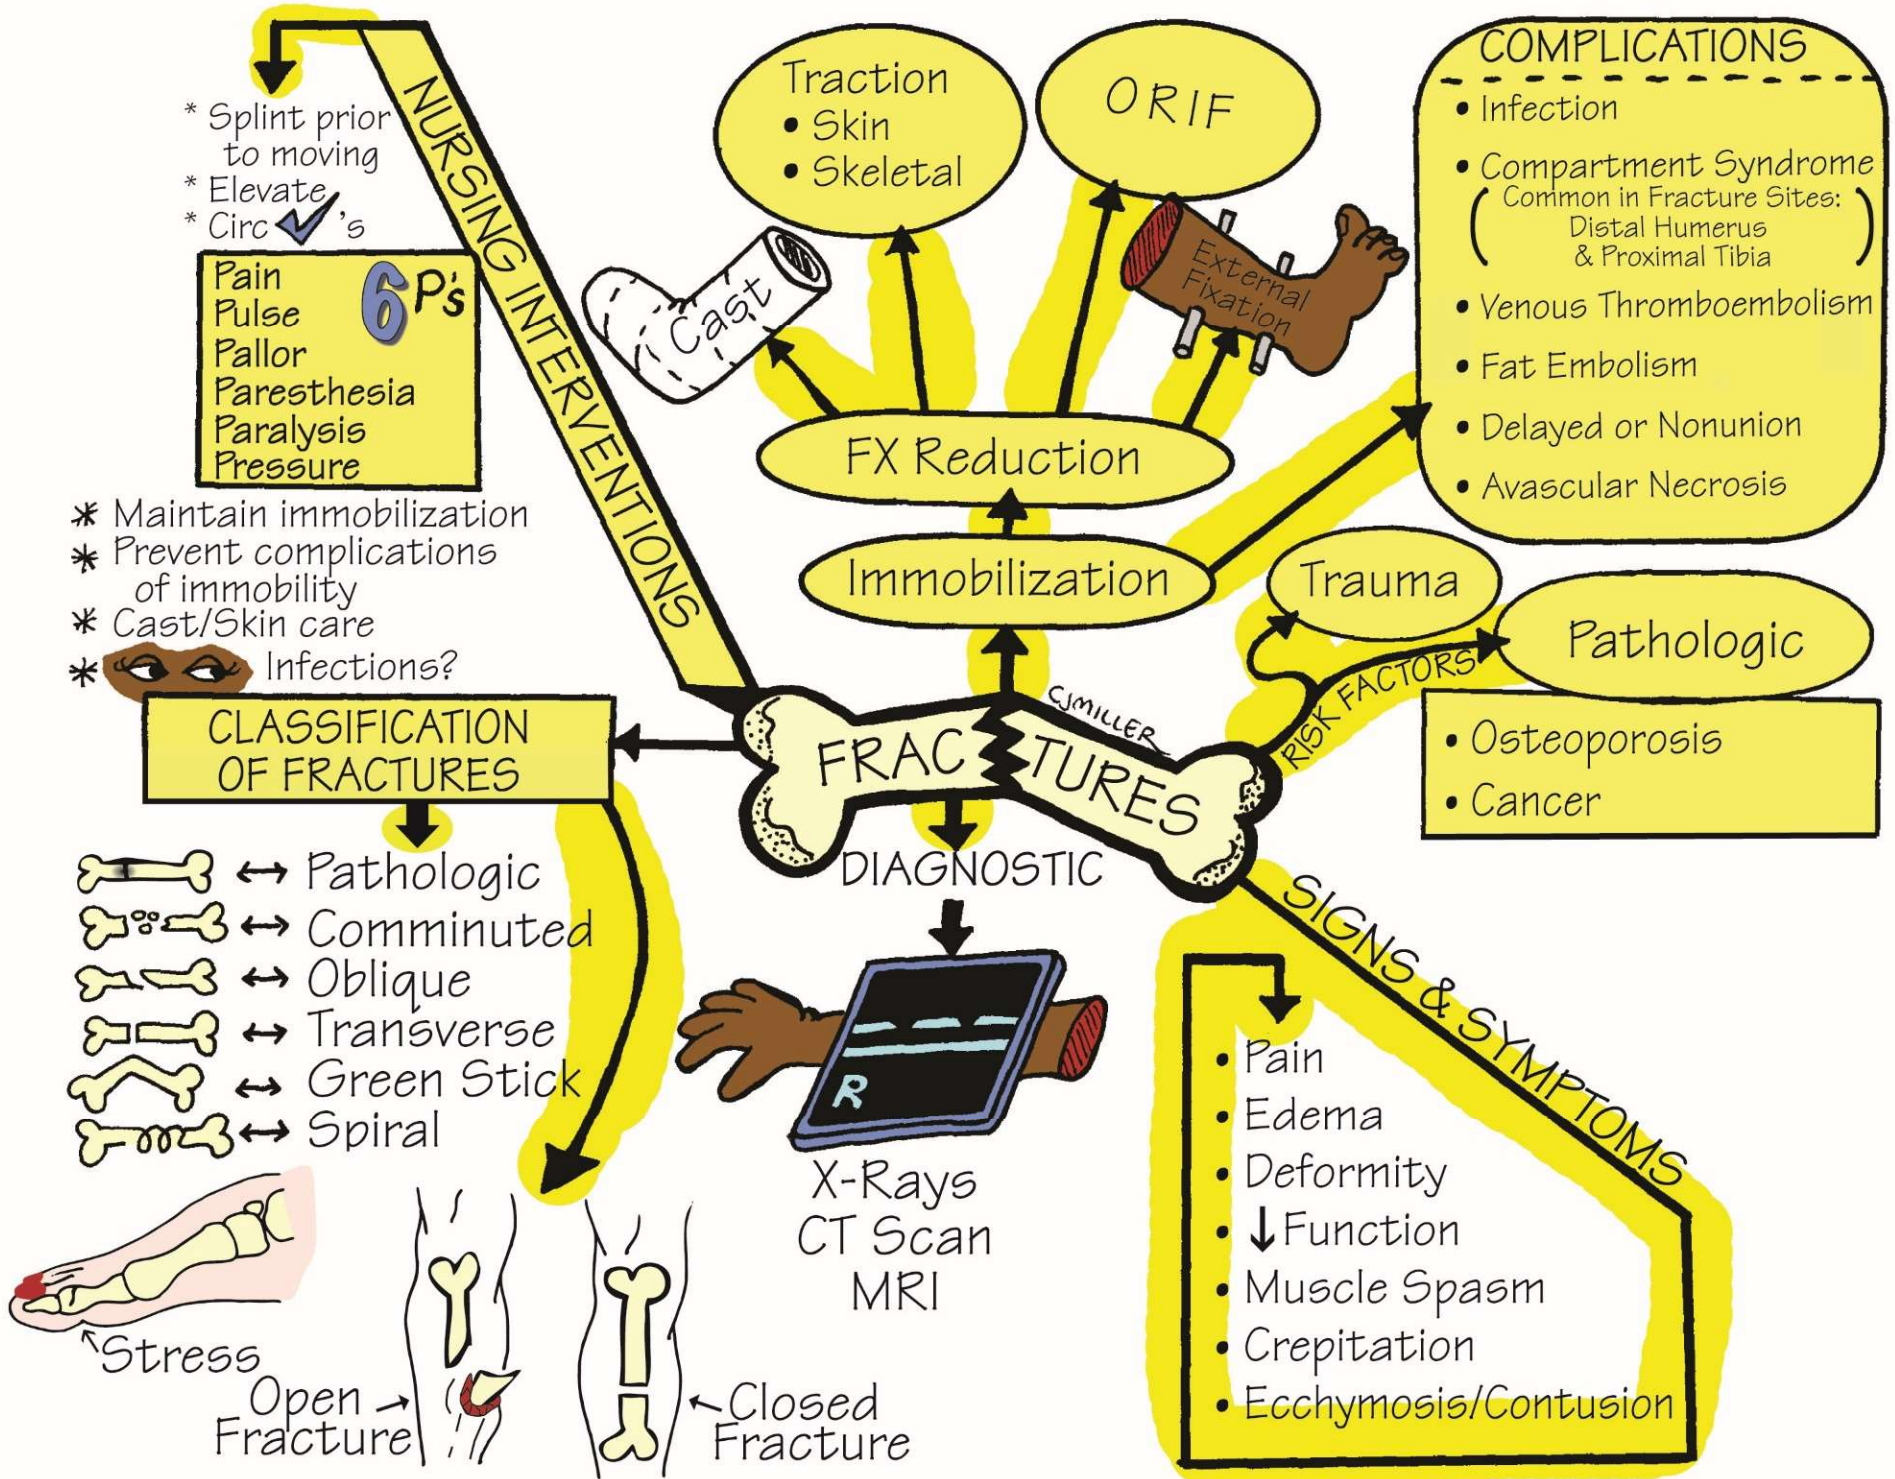 NURSING INTERVENTIONS
* Splint prior
to moving
* Elevate
* Circ ✓'s
6 P's
Pain
Pulse
Pallor
Paresthesia
Paralysis
Pressure
* Maintain immobilization
* Prevent complications
of immobility
* Cast/Skin care
* Infections?
Traction
• Skin
• Skeletal
ORIF
Cast
External
Fixation
FX Reduction
Immobilization
COMPLICATIONS
• Infection
• Compartment Syndrome
(Common in Fracture Sites:
Distal Humerus
& Proximal Tibia)
• Venous Thromboembolism
• Fat Embolism
• Delayed or Nonunion
• Avascular Necrosis
Trauma
Pathologic
RISK FACTORS
• Osteoporosis
• Cancer
CJMILLER
FRACTURES
CLASSIFICATION
OF FRACTURES
↔ Pathologic
↔ Comminuted
↔ Oblique
↔ Transverse
↔ Green Stick
↔ Spiral
Stress
Open
Fracture
Closed
Fracture
DIAGNOSTIC
R
X-Rays
CT Scan
MRI
SIGNS & SYMPTOMS
• Pain
• Edema
• Deformity
• ↓Function
• Muscle Spasm
• Crepitation
• Ecchymosis/Contusion